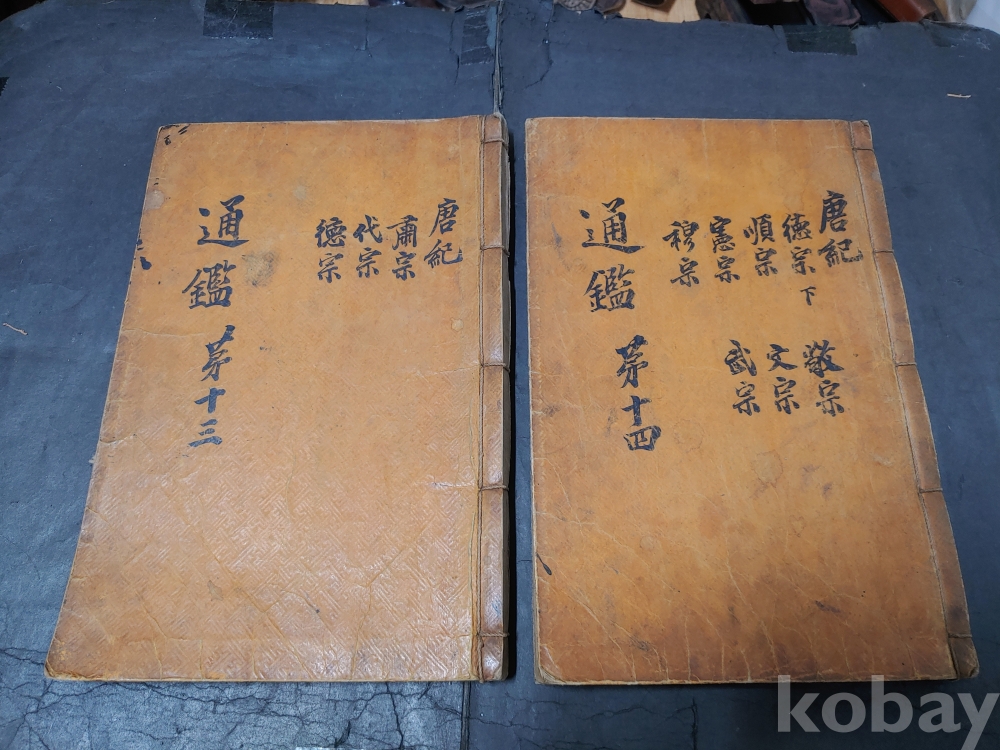 通鑑 第十三
唐紀
肅宗
代宗
德宗
通鑑 第十四
唐紀
德宗下
順宗
憲宗
穆宗
敬宗
文宗
武宗
kobay